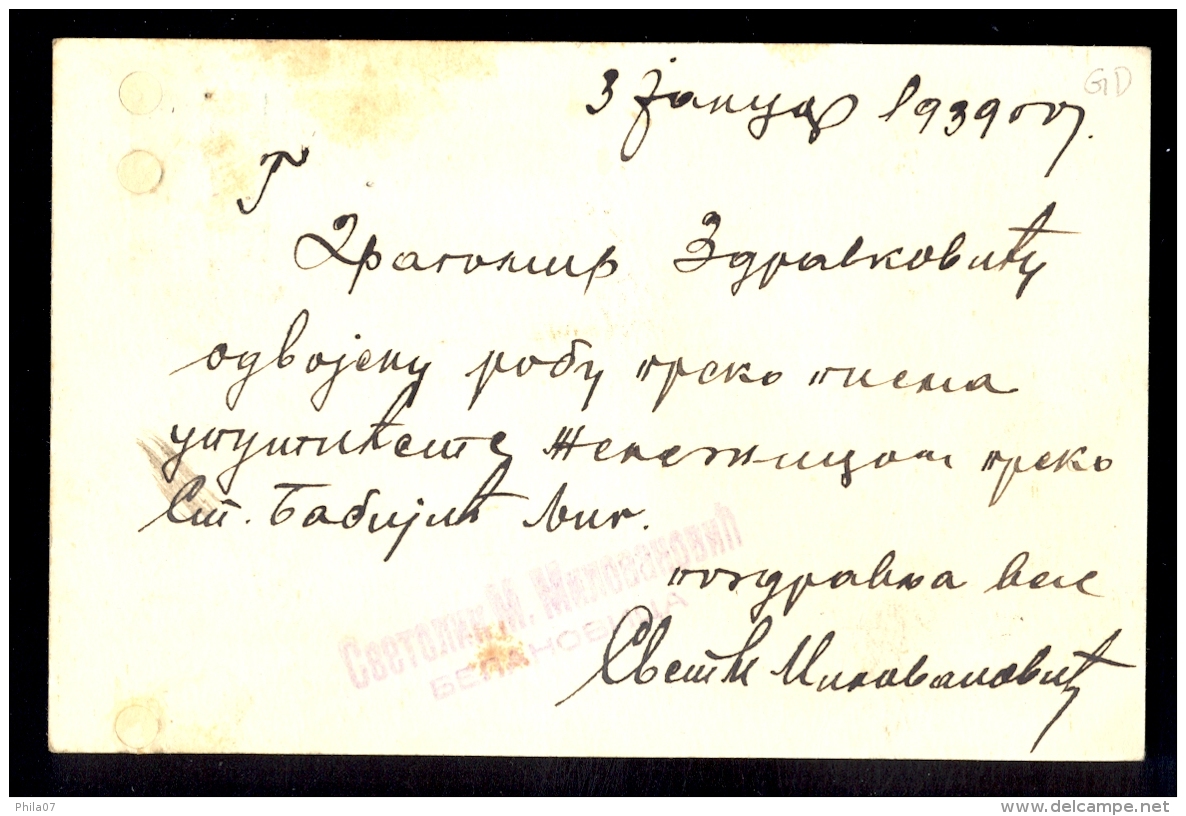 3 јануар 1939 год.
GD
Г
Драгомир Здравковићу
одвојену робу преко писма
упутићете Железницом преко
Ст. Бабијић Љиг.
поздравља вас
Светлик М. Миловановић
БЕЛАНОВИЦА
Свет М Миловановић
Phila07
www.delcampe.net